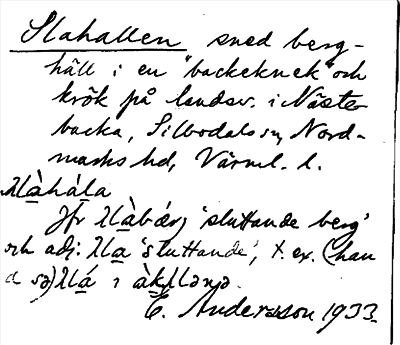 Slahallen sned berg-
häll i en "backeknek" och
krök på landsv. i Näster
backa, Silbodals sn, Nord-
marks hd, Värml. l.
λlàhála
Jfr λlàbærj 'sluttande berg'
och adj. λla 'sluttande', t. ex. (han
a sə) λlá i àkλlənə.
E. Andersson 1933.